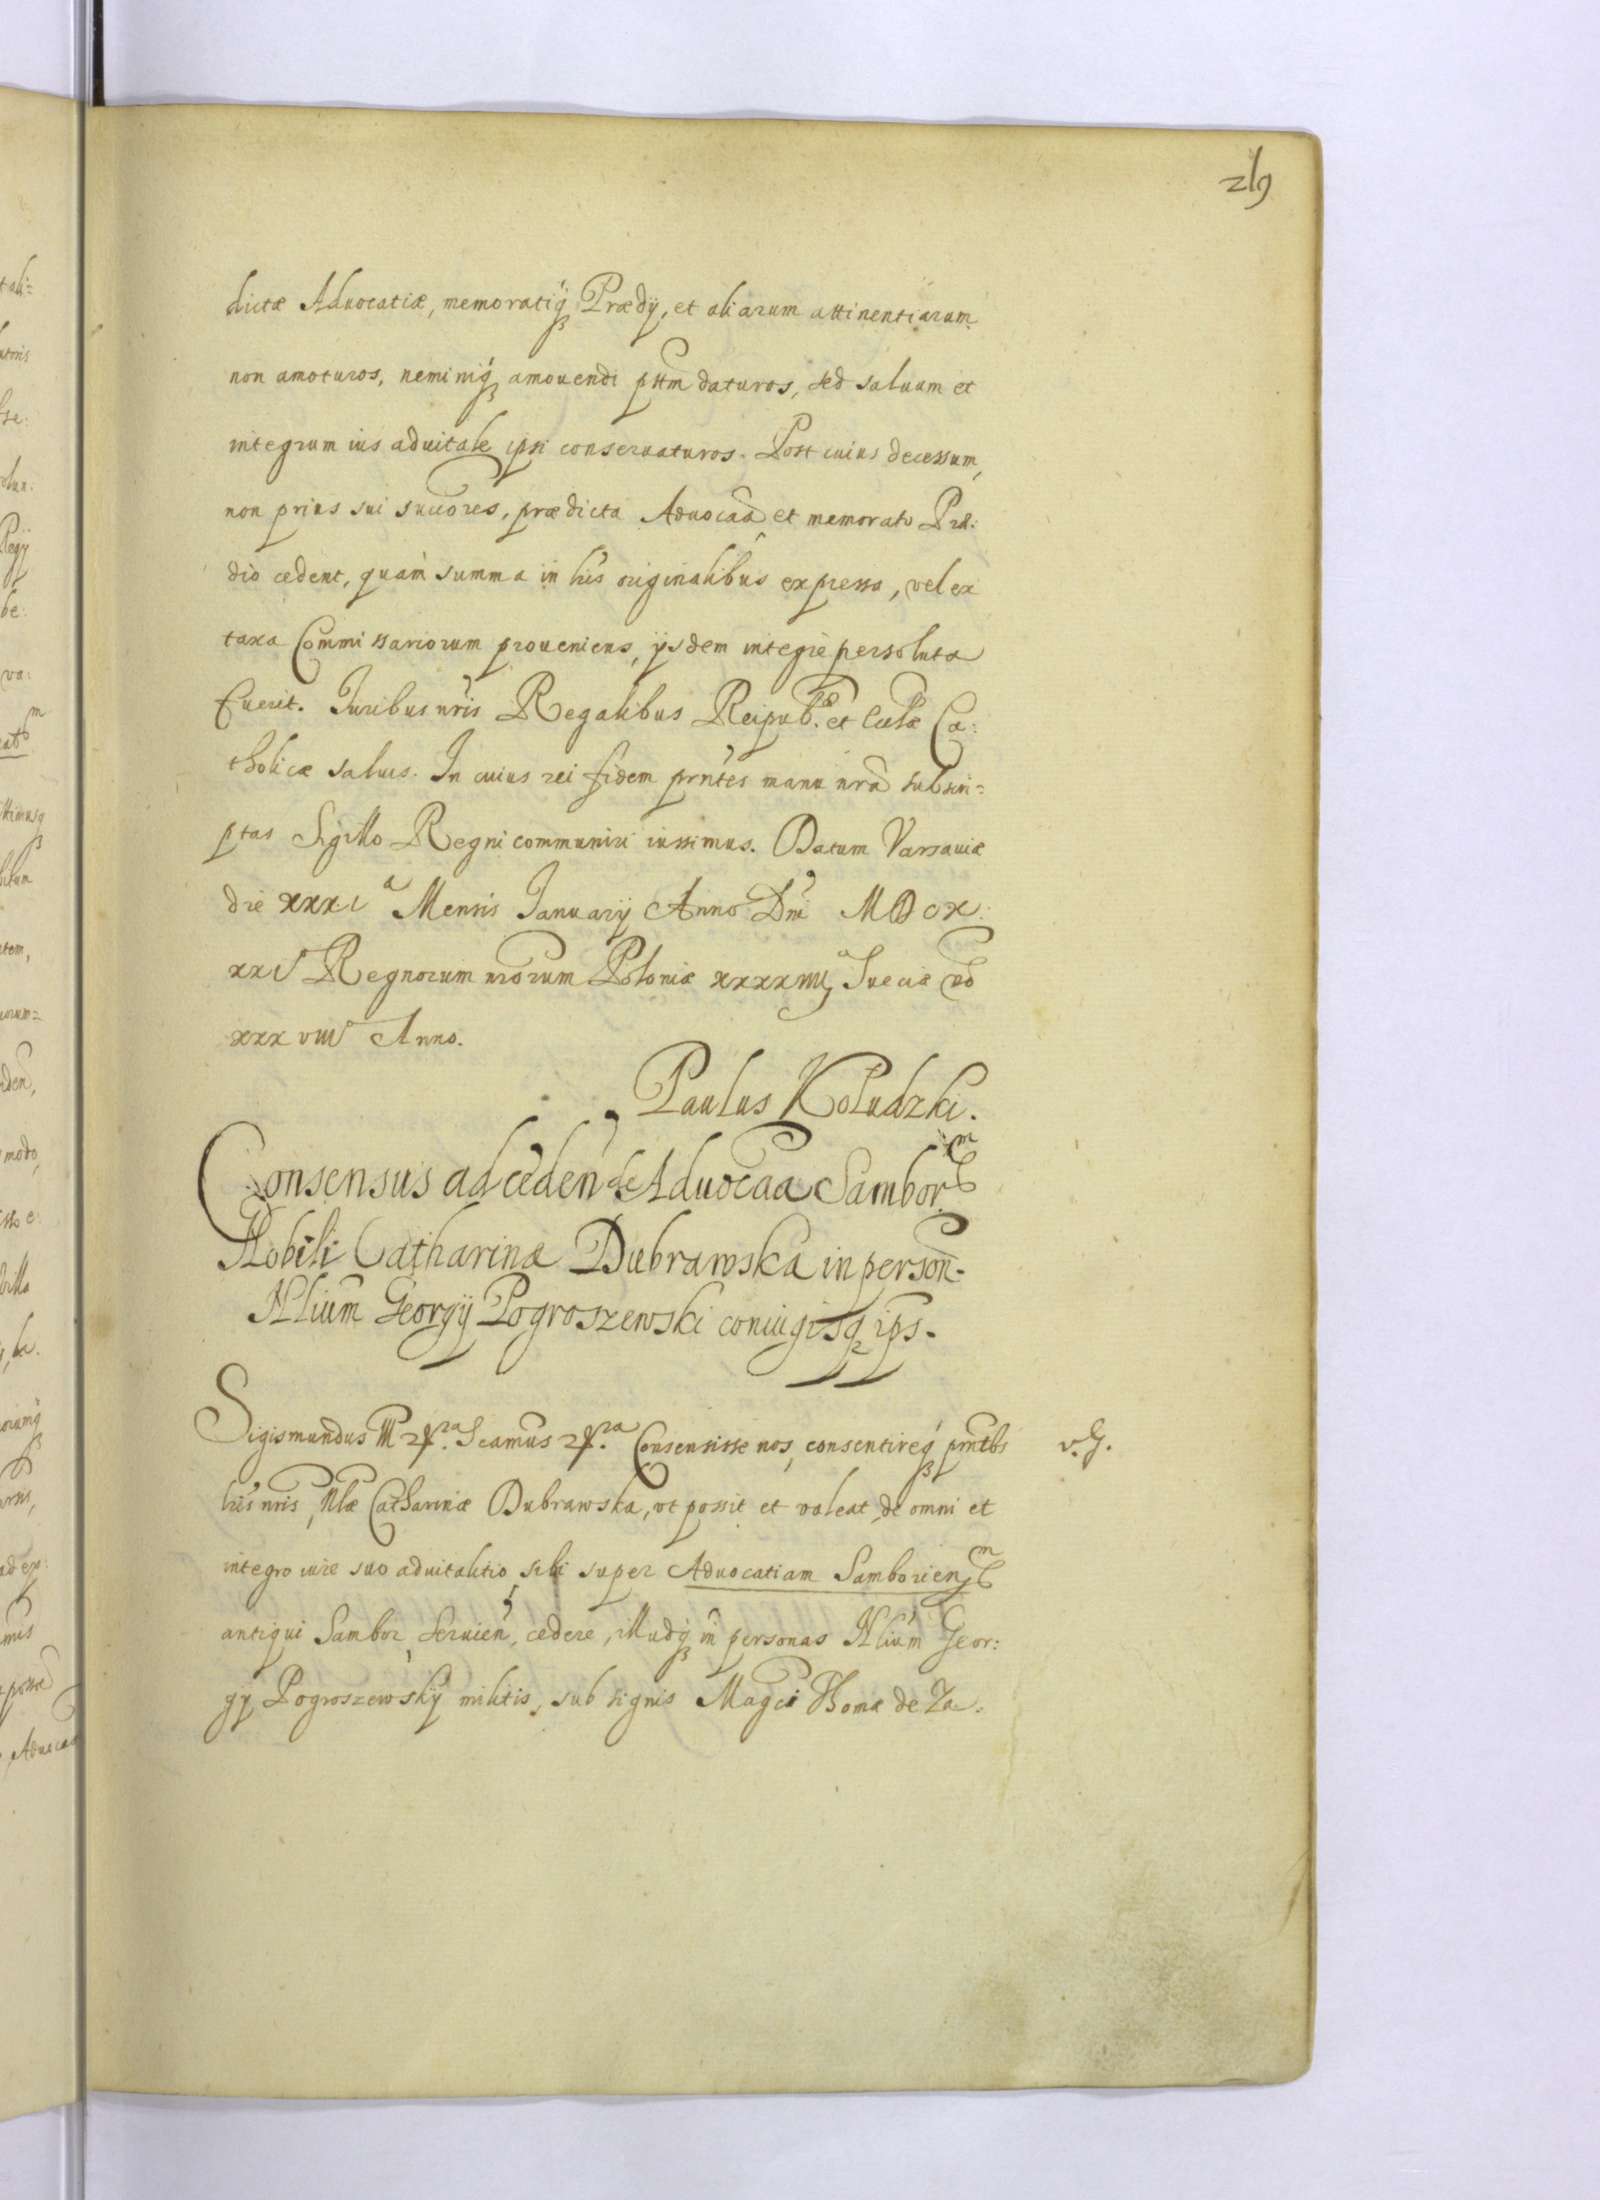 219
dictæ Aduocatiæ, memoratiq3 Prædij, et aliarum attinentiarum
non amoturos, neminiq3 amouendi pttm daturos, sed saluum et
integrum ius aduitale ipsi conseruaturos. Post cuius decessum,
non prius sui succores, prædicta Aduocaa et memorato Præ:
dio cedent, quàm summa in his originalibus expressa, vel ex
taxa Commissariorum proueniens, ijsdem integre persoluta
fuerit. Iuribus nris Regalibus Reipub. et Cctæ Ca:
tholicæ saluis. In cuius rei fidem pnntes manu nra subscri=
ptas Sigillo Regni communiri iussimus. Datum Varsauiæ
die xxxi a Mensis Ianuarij Anno Dni MDCX:
xxi Regnorum nrorum Poloniæ xxxxiiii Sueciæ vo
xxxviii Anno.
Paulus Koludzki.
Consensus ad ceden de Aduocaa Sambor.
Nobili Catharinæ Dubrawska in person.
Nlium Georgij Pogroszewski coniugisq3 ips.
Sigismundus III ra Scamus ra Consensisse nos, consentireq3 pnntbs
his nris, Nlæ Catharinæ Dubrawska, vt possit et valeat, de omni et
integro iure suo aduitalitio sibi super Aduocatiam Samborien
antiqui Sambor seruien, cedere, illudq3 in personas Nlium Geor:
gij Pogroszewskij militis, sub signis Magci Thomæ de Za.
v. G.